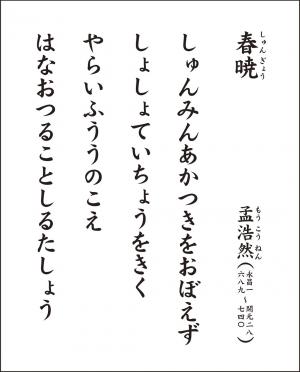 春暁
しゅんぎょう
孟浩然(永昌一~開元二八
六八九~七四〇)
もうこうねん
しゅんみんあかつきをおぼえず
しょしょていちょうをきく
やらいふううのこえ
はなおつることしるたしょう